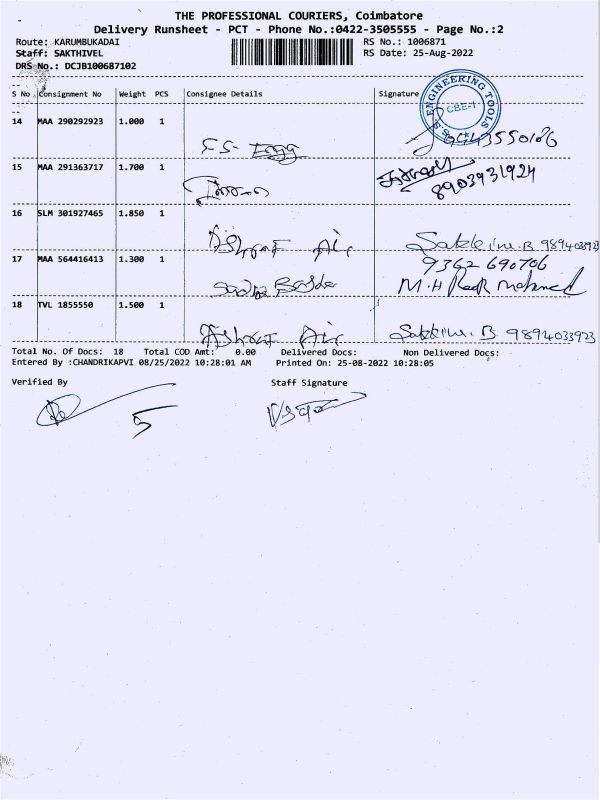 THE PROFESSIONAL COURIERS, Coimbatore
Delivery Runsheet - PCT - Phone No.:0422-3505555 - Page No.:2
Route: KARUMBUKADAI RS No.: 1006871
Staff: SAKTHIVEL RS Date: 25-Aug-2022
DRS No.: DCJB100687102
S No Consignment No Weight PCS Consignee Details Signature
S.S. ENGINEERING TOOLS
CBE-1
14 MAA 290292923 1.000 1
S.S. Engg
15 MAA 291363717 1.700 1
8903931924
16 SLM 301927465 1.850 1
Ashraf Air 9894033923
17 MAA 564416413 1.300 1 9362690706
18 TVL 1855550 1.500 1
Ashraf Air B 9894033923
Total No. Of Docs: 18 Total COD Amt: 0.00 Delivered Docs: Non Delivered Docs:
Entered By :CHANDRIKAPVI 08/25/2022 10:28:01 AM Printed On: 25-08-2022 10:28:05
Verified By Staff Signature